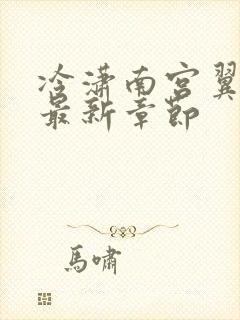 冷潇南宫翼
最新章节
馬嘯